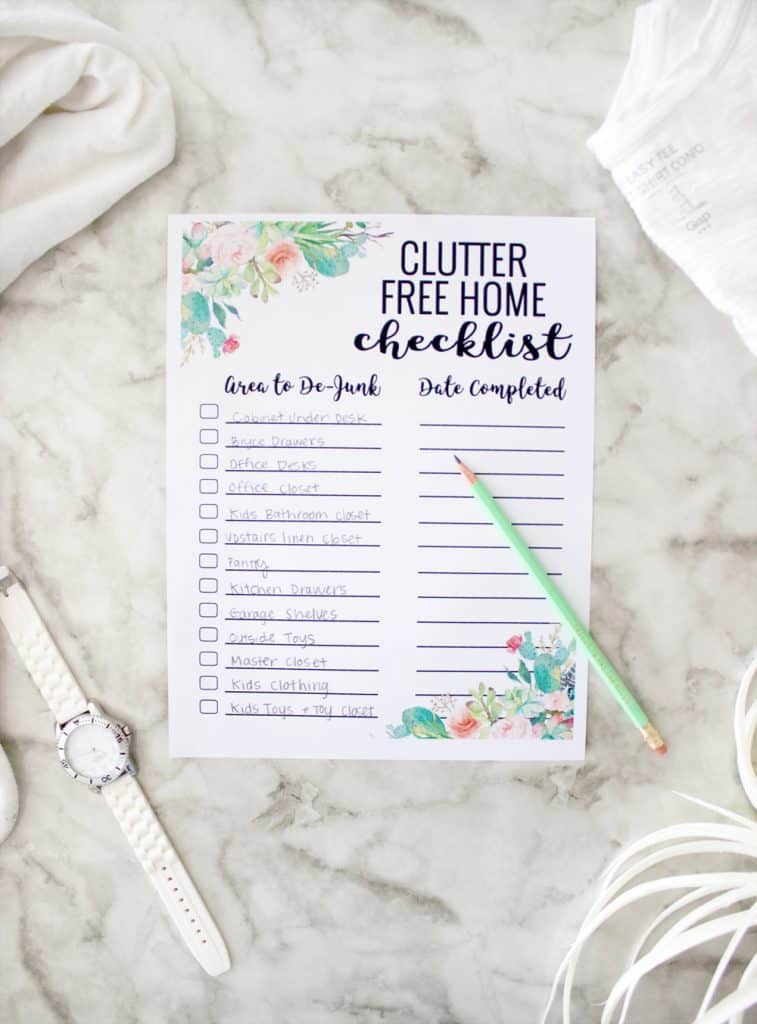 EASY TEE
SHIRT CONO
Gap
CLUTTER
FREE HOME
checklist
Area to De-Junk Date Completed
Cabinet Under Desk
Bryce Drawers
Office Desks
Office Closet
Kids Bathroom Closet
Upstairs linen closet
Pantry
Kitchen Drawers
Garage Shelves
Outside Toys
Master Closet
Kids Clothing
Kids Toys + Toy Closet